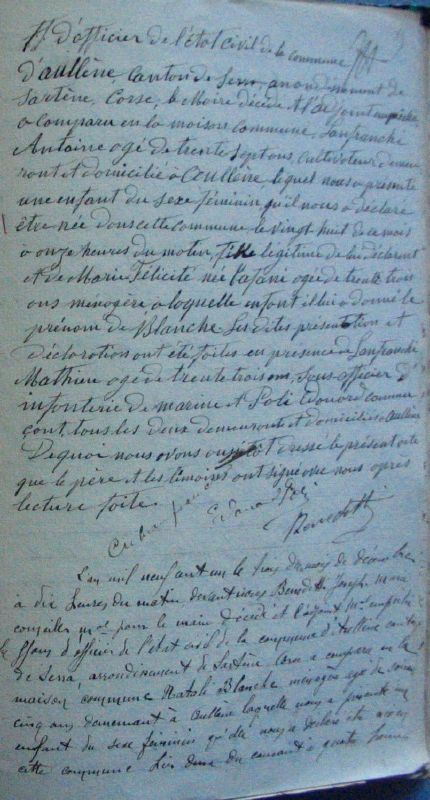 ff d'officier de l'état civil de la commune
d'aullène, canton de Serra, arrondissement de
Sartène, Corse, le Maire décédé et l'adjoint empêché
a comparu en la maison commune, Lanfranchi
Antoine agé de trente sept ans, cultivateur demeu
rant et domicilié à aullène, lequel nous a présenté
une enfant du sexe féminin qu'il nous a déclaré
être née dans cette commune, le vingt huit de ce mois
à onze heures du matin, fille légitime de lui déclarant
et de Marie Félicité née agée de trente trois
ans menagère, a laquelle enfant il lui a donné le
prénom de Blanche. Les dites présentation et
déclaration ont été faites en presence de Lanfranchi
Mathieu agé de trente trois ans, Sous officier d'
infanterie de marine et Poli Edouard commer
çant, tous les deux demeurant et domiciliés à aullène
De quoi nous avons dressé le présent acte
que le père et les témoins ont signé avec nous après
lecture faite.
Benedetti
L'an mil neuf cent un le trois du mois de décembre
à dix heures du matin devant nous Benedetti Joseph Marie
conseiller mpal pour le maire décédé et l'adjoint empêché
ffons d'officier de l'état civil de la commune d'Aullène canton
de Serra, arrondissement de Sartène Corse a comparu en la
maison commune Natali Blanche menagère agée de soixante
cinq ans demeurant à Aullène laquelle nous a présenté un
enfant du sexe féminin qu'elle nous a déclaré être née en
cette commune le deux du courant à quatre heures